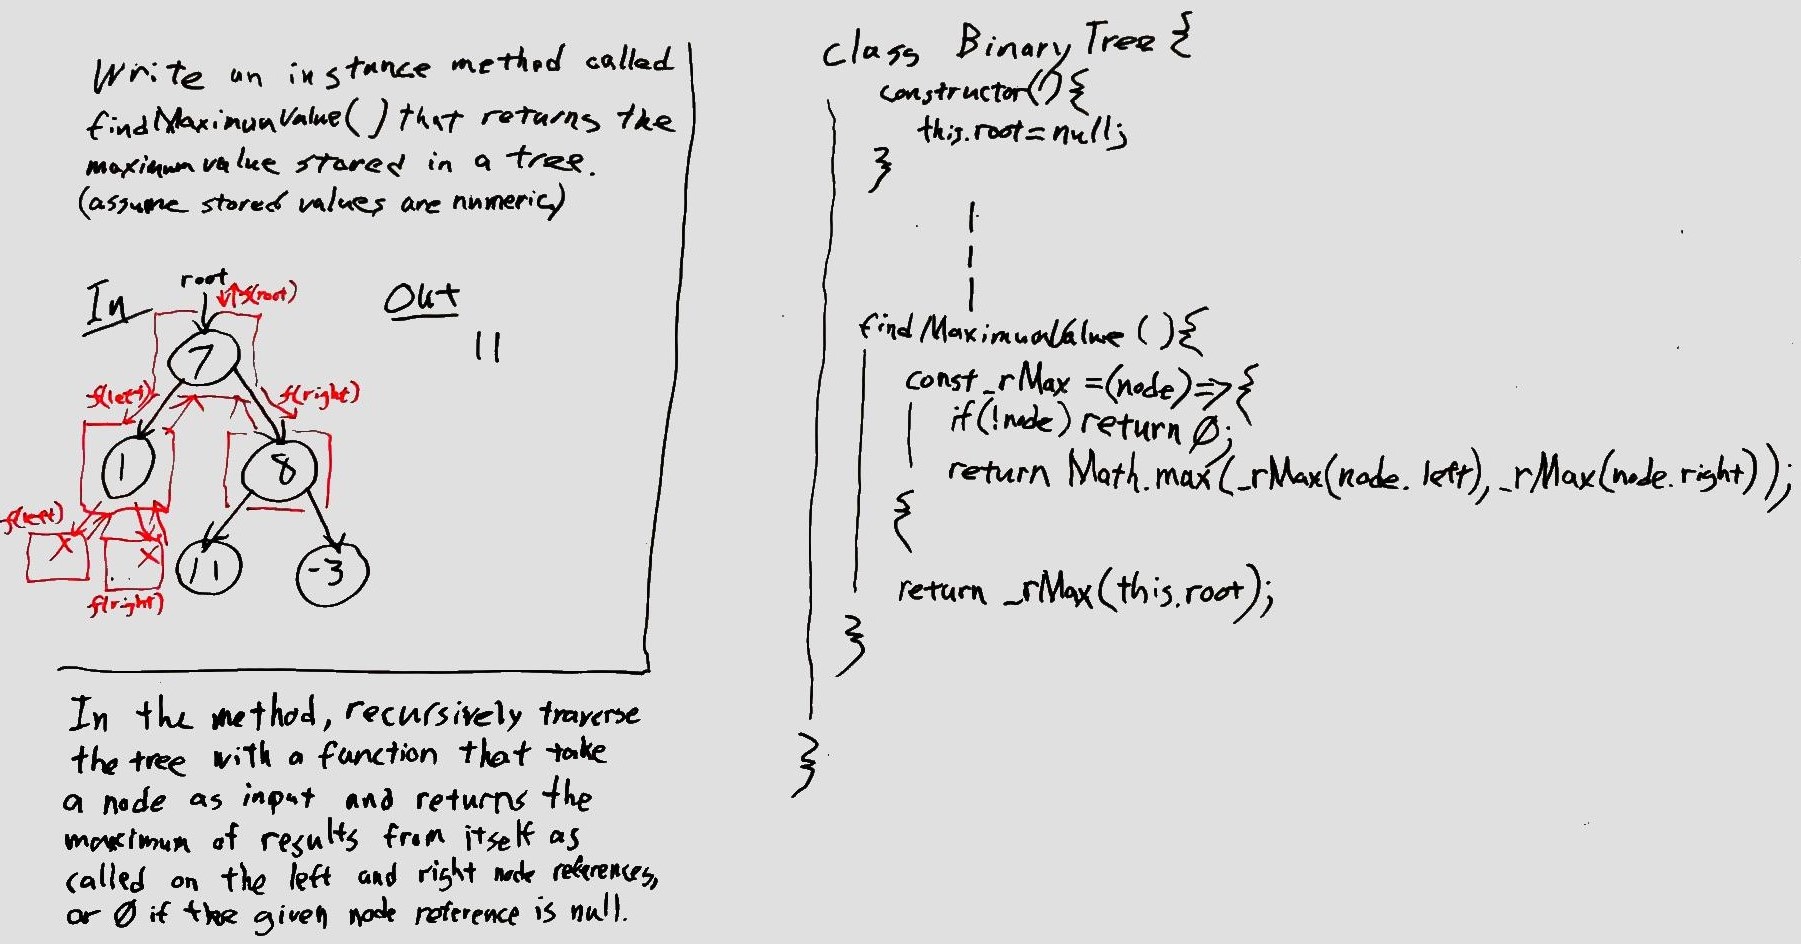 Write an instance method called
findMaximumValue() that returns the
maximum value stored in a tree.
(assume stored values are numeric)
In
Out
11
root
f(root)
7
f(left)
f(right)
1
8
f(left)
11
-3
f(right)
In the method, recursively traverse
the tree with a function that take
a node as input and returns the
maximum of results from itself as
called on the left and right node references,
or 0 if the given node reference is null.
class BinaryTree {
constructor() {
this.root = null;
}
findMaximumValue () {
const _rMax = (node) => {
if (!node) return 0;
return Math.max(_rMax(node.left), _rMax(node.right));
{
return _rMax(this.root);
}
}